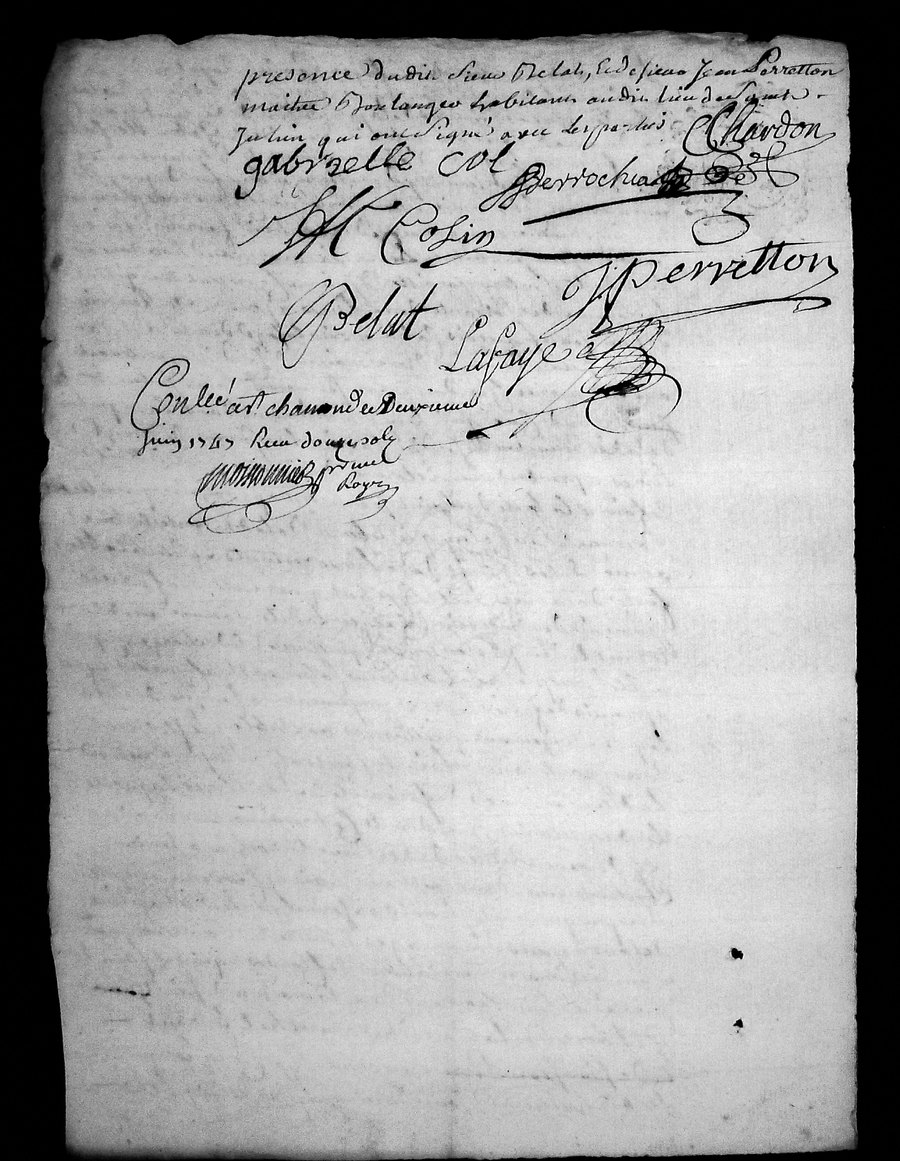 presence dudit sieur Belat, & de sieur Jean Perretton
maitre Boulanger habitant audit lieu de Saint
Julien qui ont signé avec les parties
Chardon
gabrzelle col
Perrochia
Colin
JPerretton
Belat
Lafaye
Conlléé a St chamond le Deuxieme
Juin 1747 Receu douze sols